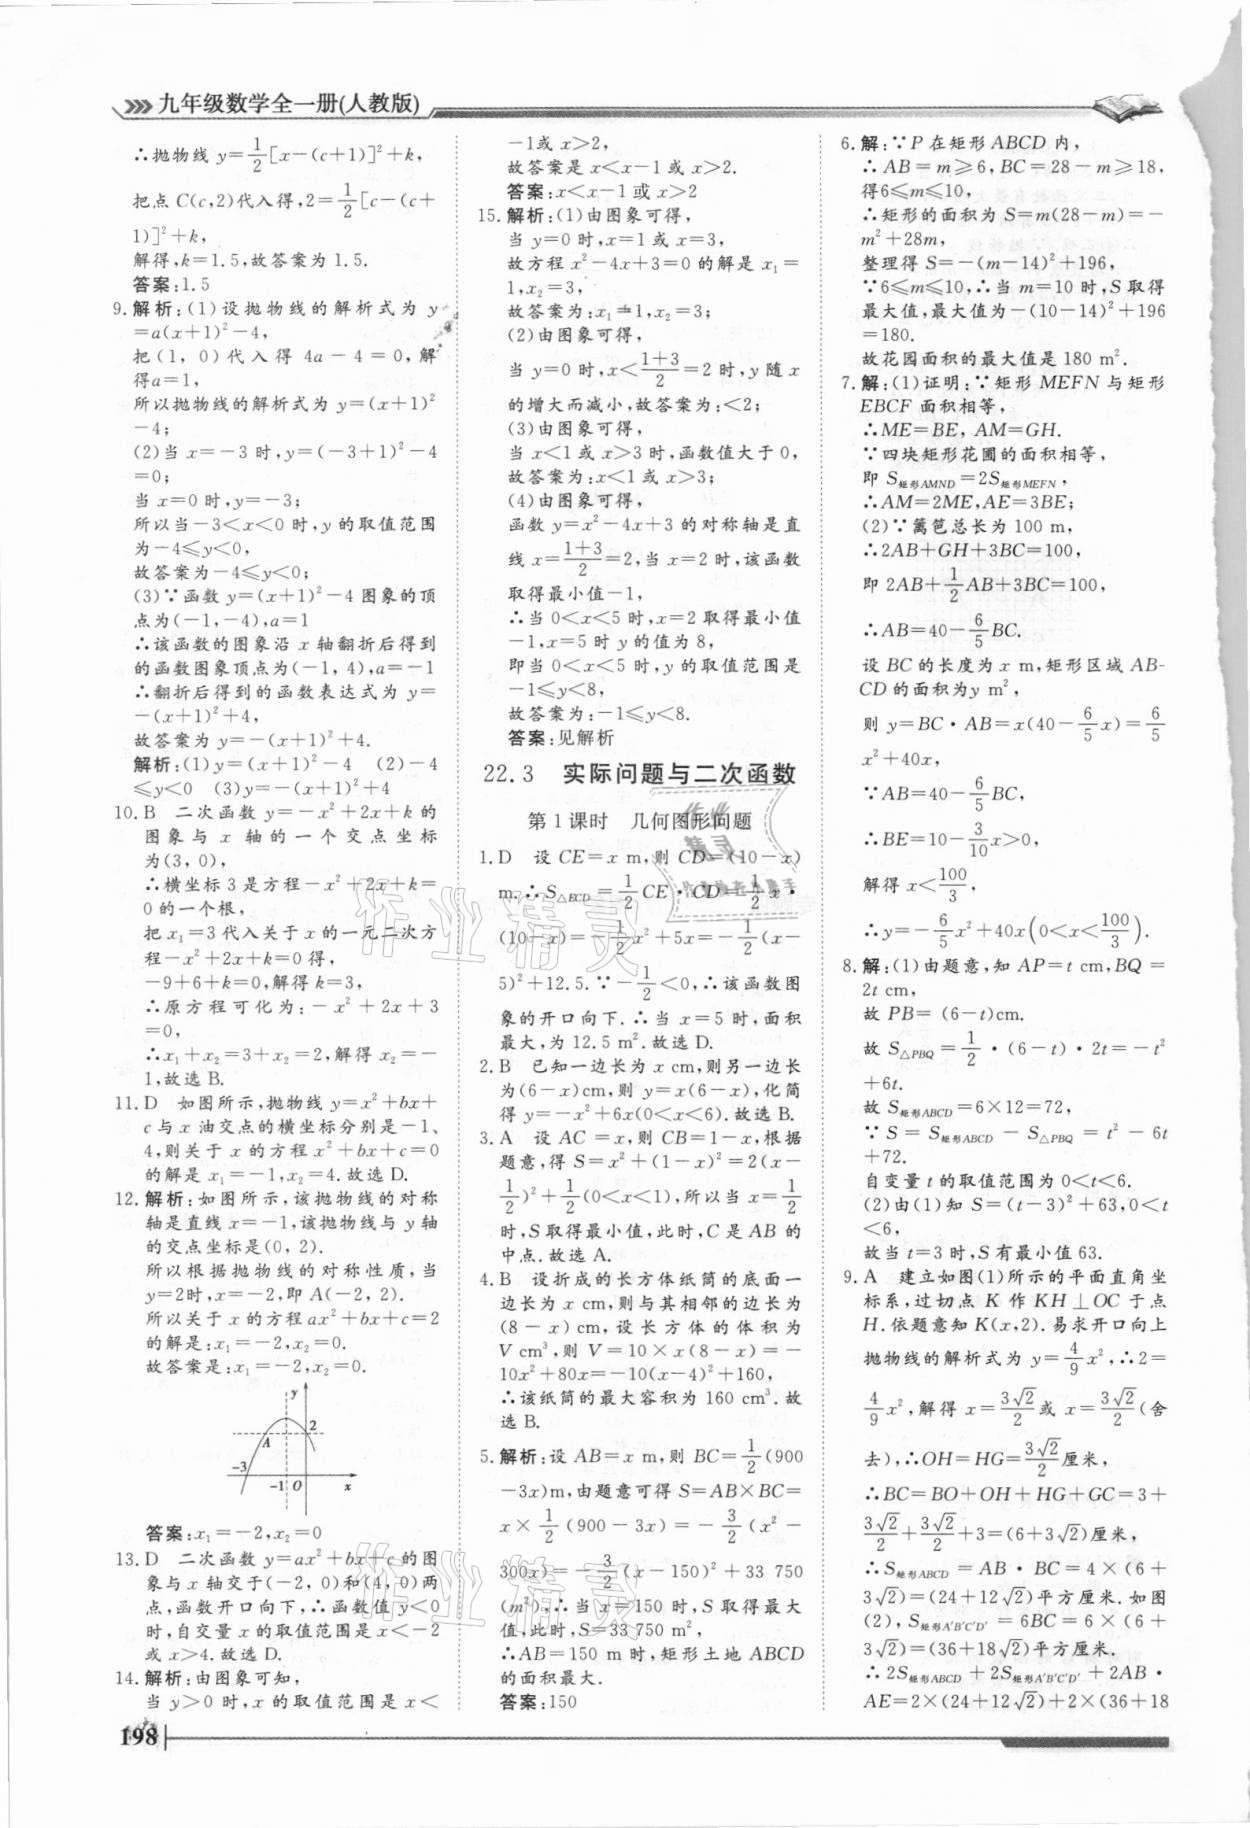 九年级数学全一册(人教版)
∴抛物线 y=1/2[x-(c+1)]²+k,
把点 C(c,2)代入得,2=1/2[c-(c+
1)]²+k,
解得,k=1.5,故答案为 1.5.
答案:1.5
9.解析:(1)设抛物线的解析式为 y
=a(x+1)²-4,
把(1, 0)代入得 4a-4=0,解
得a=1,
所以抛物线的解析式为 y=(x+1)²
-4;
(2)当 x=-3 时,y=(-3+1)²-4
=0;
当 x=0 时,y=-3;
所以当-3<x<0 时,y 的取值范围
为-4⩽y<0,
故答案为-4⩽y<0;
(3)∵函数 y=(x+1)²-4 图象的顶
点为(-1,-4),a=1
∴该函数的图象沿 x 轴翻折后得到
的函数图象顶点为(-1, 4),a=-1
∴翻折后得到的函数表达式为 y=
-(x+1)²+4,
故答案为 y=-(x+1)²+4.
解析:(1)y=(x+1)²-4 (2)-4
⩽y<0 (3)y=-(x+1)²+4
10.B 二次函数 y=-x²+2x+k 的
图象与 x 轴的一个交点坐标
为(3, 0),
∴横坐标 3 是方程-x²+2x+k=
0 的一个根,
把 x₁=3 代入关于 x 的一元二次方
程-x²+2x+k=0 得,
-9+6+k=0,解得 k=3,
∴原方程可化为:-x²+2x+3
=0,
∴x₁+x₂=3+x₂=2,解得 x₂=-
1,故选 B.
11.D 如图所示,抛物线 y=x²+bx+
c 与 x 油交点的横坐标分别是-1、
4,则关于 x 的方程 x²+bx+c=0
的解是 x₁=-1,x₂=4.故选 D.
12.解析:如图所示,该抛物线的对称
轴是直线 x=-1,该抛物线与 y 轴
的交点坐标是(0, 2).
所以根据抛物线的对称性质,当
y=2时,x=-2,即 A(-2, 2).
所以关于 x 的方程 ax²+bx+c=2
的解是:x₁=-2,x₂=0.
故答案是:x₁=-2,x₂=0.
y
2
A
-3
-1 O x
答案:x₁=-2,x₂=0
13.D 二次函数 y=ax²+bx+c 的图
象与 x 轴交于(-2, 0)和(4, 0)两
点,函数开口向下,∴函数值 y<0
时,自变量 x 的取值范围是 x<-2
或 x>4.故选 D.
14.解析:由图象可知,
当 y>0 时,x 的取值范围是 x<
198
-1或 x>2,
故答案是 x<x-1 或 x>2.
答案:x<x-1 或 x>2
15.解析:(1)由图象可得,
当 y=0 时,x=1 或 x=3,
故方程 x²-4x+3=0 的解是 x₁=
1,x₂=3,
故答案为:x₁=1,x₂=3;
(2)由图象可得,
当 y=0 时,x<(1+3)/2=2 时,y 随 x
的增大而减小,故答案为:<2;
(3)由图象可得,
当 x<1 或 x>3 时,函数值大于 0,
故答案为:x<1 或 x>3;
(4)由图象可得,
函数 y=x²-4x+3 的对称轴是直
线 x=(1+3)/2=2,当 x=2 时,该函数
取得最小值-1,
∴当 0<x<5 时,x=2 取得最小值
-1,x=5 时 y 的值为 8,
即当 0<x<5 时,y 的取值范围是
-1⩽y<8,
故答案为:-1⩽y<8.
答案:见解析
22.3 实际问题与二次函数
第 1 课时 几何图形问题
1.D 设 CE=x m,则 CD=(10-x)
m.∴S△ECD=1/2CE·CD=1/2x·
(10-x)=-1/2x²+5x=-1/2(x-
5)²+12.5.∵-1/2<0,∴该函数图
象的开口向下.∴当 x=5 时,面积
最大,为 12.5 m².故选 D.
2.B 已知一边长为 x cm,则另一边长
为(6-x)cm,则 y=x(6-x),化简
得 y=-x²+6x(0<x<6).故选 B.
3.A 设 AC=x,则 CB=1-x,根据
题意,得 S=x²+(1-x)²=2(x-
1/2)²+1/2(0<x<1),所以当 x=1/2
时,S取得最小值,此时,C 是 AB 的
中点.故选 A.
4.B 设折成的长方体纸筒的底面一
边长为 x cm,则与其相邻的边长为
(8-x)cm,设长方体的体积为
V cm³,则 V=10×x(8-x)=-
10x²+80x=-10(x-4)²+160,
∴该纸筒的最大容积为 160 cm³.故
选 B.
5.解析:设 AB=x m,则 BC=1/2(900
-3x)m,由题意可得 S=AB×BC=
x×1/2(900-3x)=-3/2(x²-
300x)=-3/2(x-150)²+33 750
(m²),∴当 x=150 时,S 取得最大
值,此时,S=33 750 m²,
∴AB=150 m 时,矩形土地 ABCD
的面积最大.
答案:150
6.解:∵P 在矩形 ABCD 内,
∴AB=m⩾6,BC=28-m⩾18,
得6⩽m⩽10,
∴矩形的面积为 S=m(28-m)=-
m²+28m,
整理得 S=-(m-14)²+196,
∵6⩽m⩽10,∴当 m=10 时,S 取得
最大值,最大值为-(10-14)²+196
=180.
故花园面积的最大值是 180 m².
7.解:(1)证明:∵矩形 MEFN 与矩形
EBCF 面积相等,
∴ME=BE, AM=GH.
∵四块矩形花圃的面积相等,
即 S矩形AMND=2S矩形MEFN,
∴AM=2ME,AE=3BE;
(2)∵篱笆总长为 100 m,
∴2AB+GH+3BC=100,
即 2AB+1/2AB+3BC=100,
∴AB=40-6/5BC.
设 BC 的长度为 x m,矩形区域 AB-
CD 的面积为y m²,
则 y=BC·AB=x(40-6/5x)=6/5
x²+40x,
∵AB=40-6/5BC,
∴BE=10-3/10x>0,
解得 x<100/3,
∴y=-6/5x²+40x(0<x<100/3).
8.解:(1)由题意,知 AP=t cm,BQ=
2t cm,
故 PB=(6-t)cm.
故 S△PBQ=1/2·(6-t)·2t=-t²
+6t.
故 S矩形ABCD=6×12=72,
∵S=S矩形ABCD-S△PBQ=t²-6t
+72.
自变量 t 的取值范围为 0<t<6.
(2)由(1)知 S=(t-3)²+63,0<t
<6,
故当 t=3 时,S 有最小值 63.
9.A 建立如图(1)所示的平面直角坐
标系,过切点 K 作 KH⊥OC 于点
H.依题意知 K(x,2).易求开口向上
抛物线的解析式为 y=4/9x²,∴2=
4/9x²,解得 x=3√2/2或 x=3√2/2(舍
去),∴OH=HG=3√2/2厘米,
∴BC=BO+OH+HG+GC=3+
3√2/2+3√2/2+3=(6+3√2)厘米,
∴S矩形ABCD=AB·BC=4×(6+
3√2)=(24+12√2)平方厘米.如图
(2),S矩形A′B′C′D′=6BC=6×(6+
3√2)=(36+18√2)平方厘米.
∴2S矩形ABCD+2S矩形A′B′C′D′+2AB·
AE=2×(24+12√2)+2×(36+18
作业精灵
作业精灵
作业
精灵